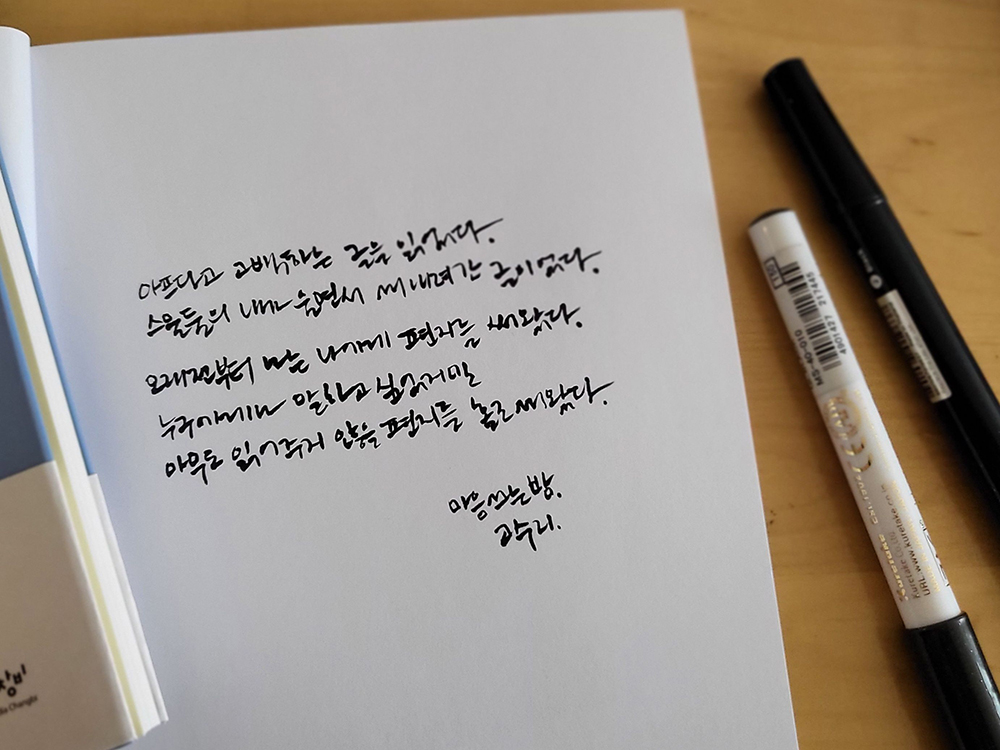 아프다고 고백하는 글을 읽었다.
스물둘의 내가 써내려간 글이었다.
오래전부터 나는 나에게 편지를 써왔다.
누구에게나 말하고 싶었지만
아무도 읽어주지 않을 편지를 홀로 써왔다.
마음쓰는밤.
고수리.
창비
Changbi
MS-40-010
4901427 217445
Kuretake
URL www.kuretake.co.jp